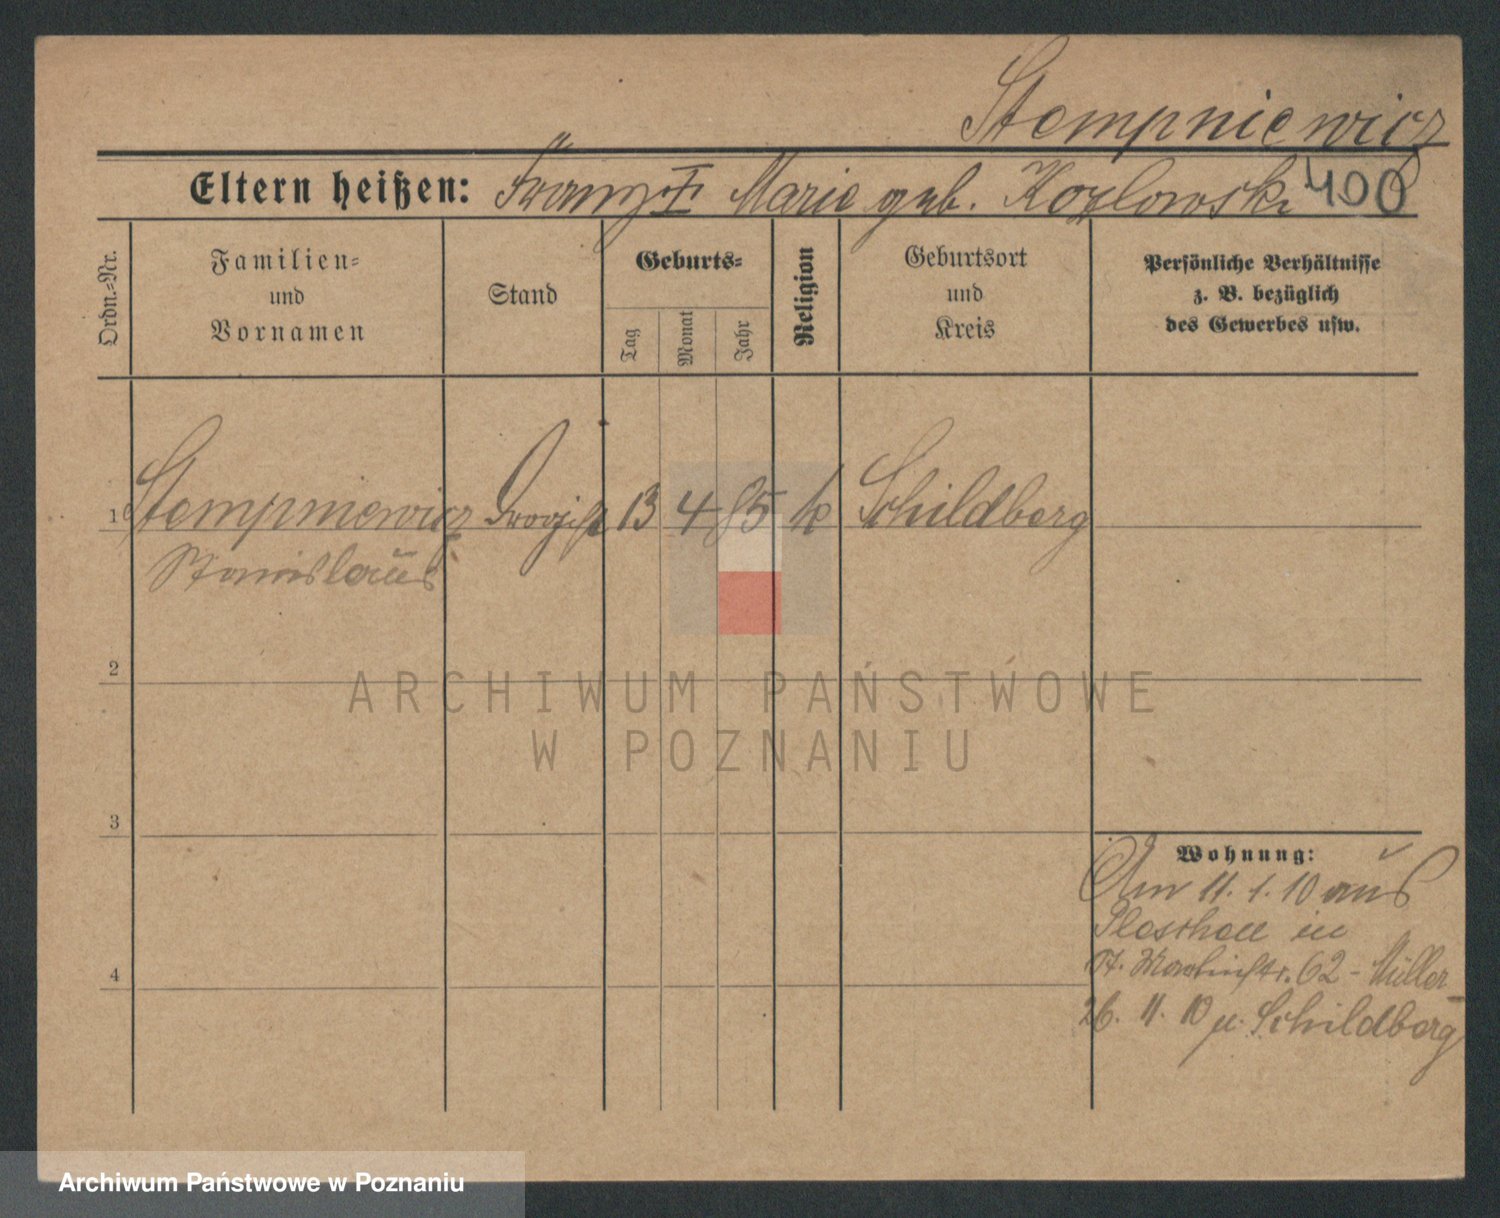 Stempniewicz
Eltern heißen: Franz I Marie geb. Kozlowski 400
Ordn.-Nr.
Familien-
und
Vornamen
Stand
Geburts-
Tag
Monat
Jahr
Religion
Geburtsort
und
Kreis
Persönliche Verhältnisse
z. B. bezüglich
des Gewerbes usw.
1 Stempniewicz 13 4 85 k Schildberg
Stanislaus
2
3
4
Wohnung:
Am 11. 1. 10 aus
in
St. Martinstr. 62 - Müller
26. 11. 10 n. Schildberg
ARCHIWUM PAŃSTWOWE
W POZNANIU
Archiwum Państwowe w Poznaniu